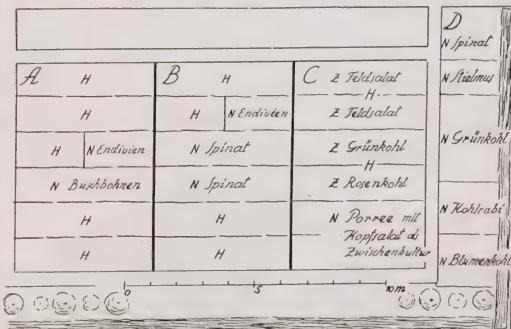 A
H
H
H
N Endivien
N Buschbohnen
H
H
B
H
H
N Endivien
N Spinat
N Spinat
H
H
C
Z Feldsalat
H
Z Feldsalat
Z Grünkohl
H
Z Rosenkohl
N Porree mit
Kopfsalat als
Zwischenkultur
D
N Spinat
N Stielmus
N Grünkohl
N Kohlrabi
N Blumenkohl
0
5
10m